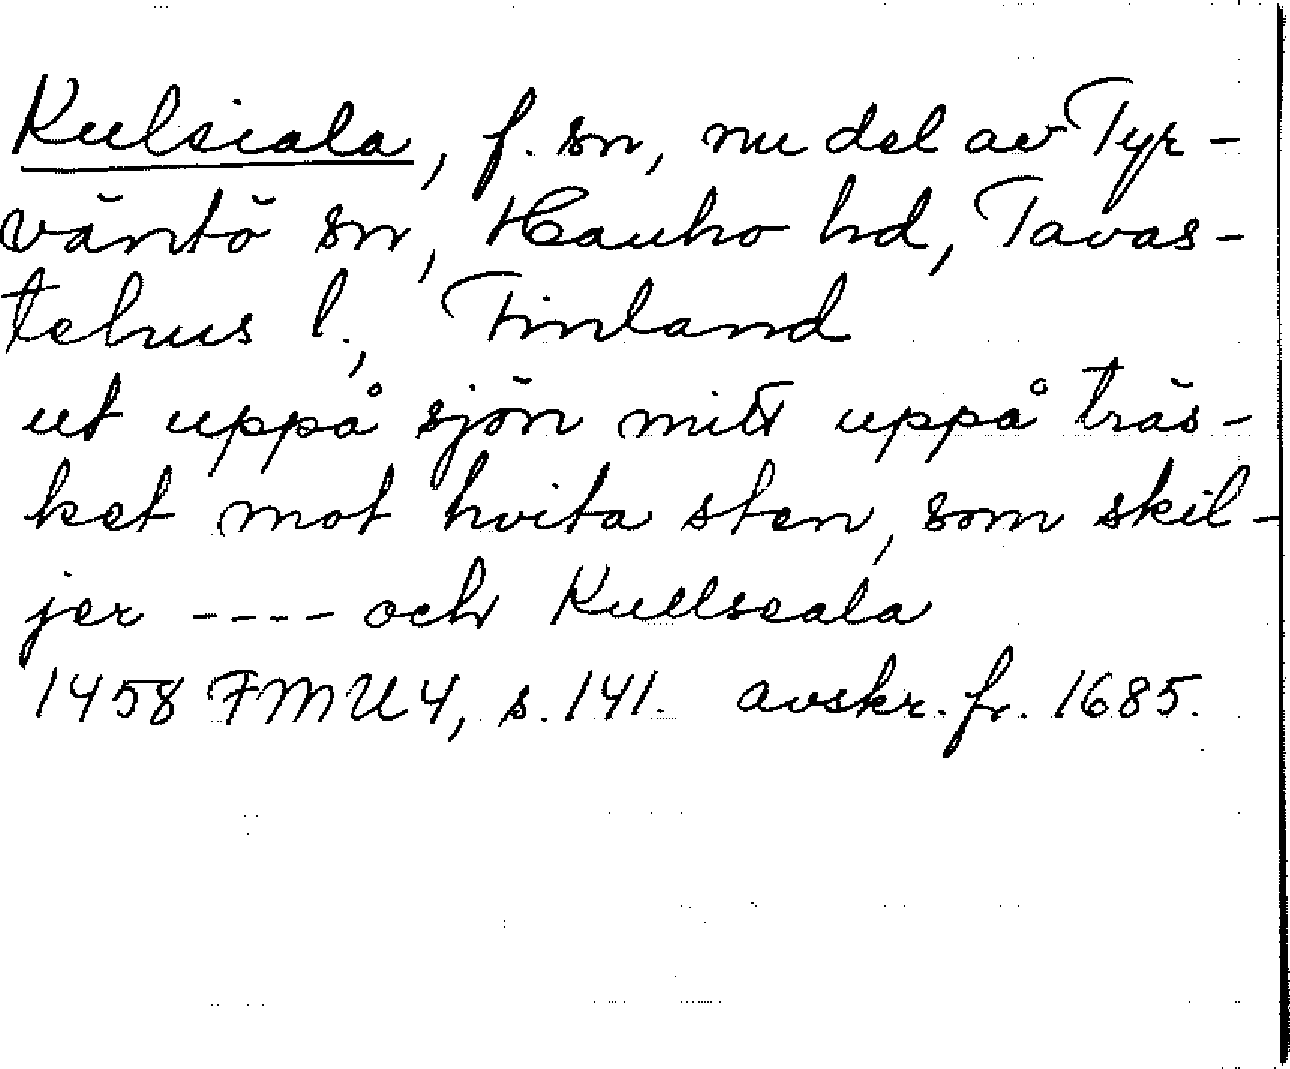 Kulsiala, f. sn, nu del av Tyr-
väntö sn, Hauho hd, Tavas-
tehus l., Finland
ut uppå sjön mitt uppå träs-
ket mot hvita sten, som skil-
jer ---- och Kullseala
1458 FMU 4, s. 141. avskr. fr. 1685.